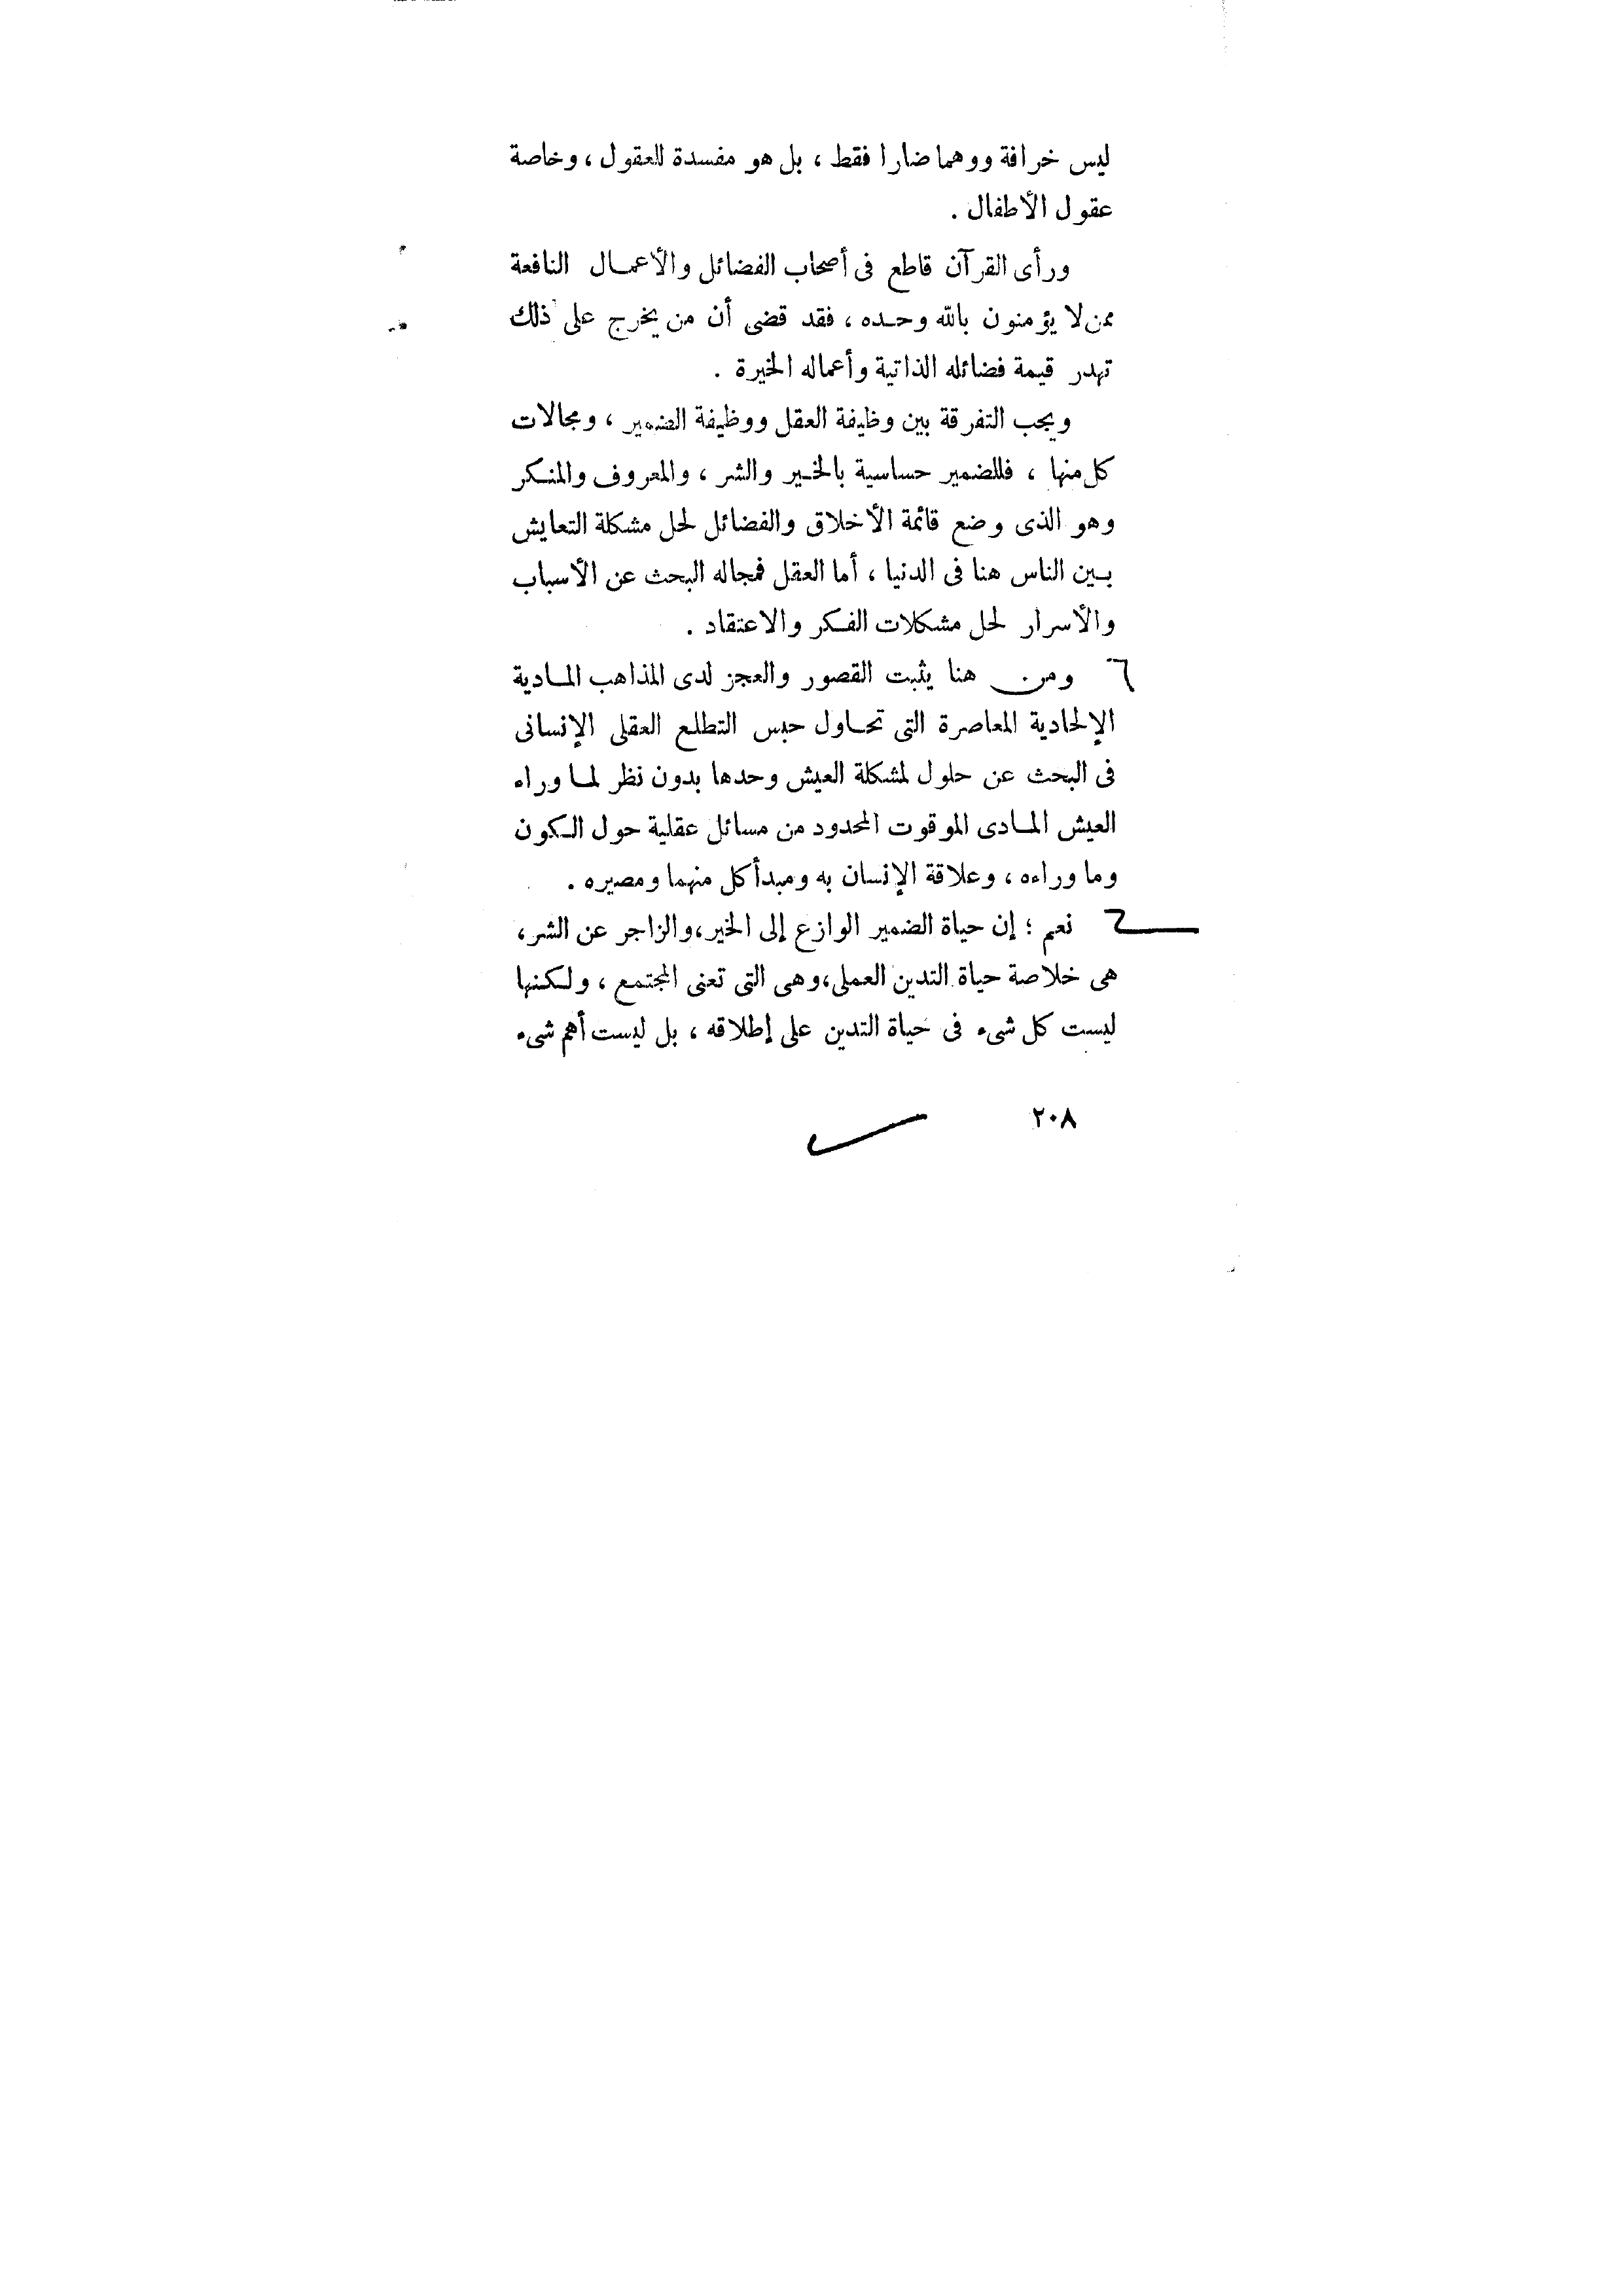 ليس خرافة ووهما ضارا فقط ، بل هو مفسدة للعقول ، وخاصة
عقول الأطفال .
ورأى القرآن قاطع فى أصحاب الفضائل والأعمال النافعة
ممن لا يؤمنون بالله وحده ، فقد قضى أن من يخرج على ذلك
تهدر قيمة فضائله الذاتية وأعماله الخيرة .
ويجب التفرقة بين وظيفة العقل ووظيفة الضمير ، ومجالات
كل منها ، فللضمير حساسية بالخير والشر ، والمعروف والمنكر
وهو الذى وضع قائمة الأخلاق والفضائل لحل مشكلة التعايش
بين الناس هنا فى الدنيا ، أما العقل فمجاله البحث عن الأسباب
والأسرار لحل مشكلات الفكر والاعتقاد .
ومن هنا يثبت القصور والعجز لدى المذاهب المادية
الإلحادية المعاصرة التى تحاول حبس التطلع العقلى الإنسانى
فى البحث عن حلول لمشكلة العيش وحدها بدون نظر لما وراء
العيش المادى الموقوت المحدود من مسائل عقلية حول الكون
وما وراءه ، وعلاقة الإنسان به ومبدأ كل منهما ومصيره .
نعم ؛ إن حياة الضمير الوازع إلى الخير، والزاجر عن الشر،
هى خلاصة حياة التدين العملى، وهى التى تعنى المجتمع ، ولكنها
ليست كل شىء فى حياة التدين على إطلاقه ، بل ليست أهم شىء
٢٠٨